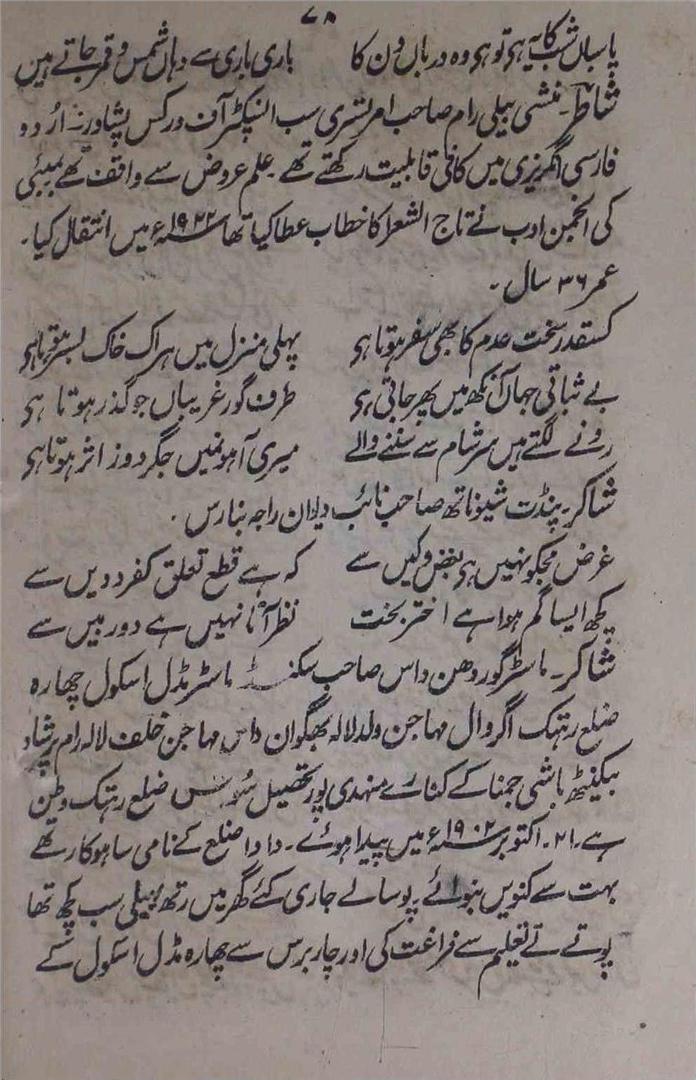 ۷۸
پاسباں شب کا یہ ہی تو ہی وہ درباں دن کا باری باری سے وہاں شمس و قمر جاتے ہیں
شاطر۔ منشی بیلی رام صاحب امرتسری سب انسپکٹر آف ورکس پشاور۔ اُردو
فارسی انگریزی میں کافی قابلیت رکھتے تھے۔ علم عروض سے واقف تھے بمبئی
کی انجمن ادب نے تاج الشعرا کا خطاب عطا کیا تھا ۱۹۲۲ء میں انتقال کیا۔
عمر ۳۶ سال۔
کسقدر سخت عدم کا بھی سفر ہوتا ہی پہلی منزل میں ہر اک خاک بسر ہوتا ہی
بے ثباتی جہاں آنکھ میں پھر جاتی ہی طرف گور غریباں جو گذر ہوتا ہی
رونے لگتے ہیں سر شام سے سننے والے میری آہونمیں جگر دوز اثر ہوتا ہی
شاکر۔ پنڈت شیوناتھ صاحب نائب دیوان راجہ بنارس۔
غرض مجکو نہیں ہی بغض و کیں سے کہ ہے قطع تعلق کفر و دیں سے
کچھ ایسا گم ہوا ہے اختر بخت نظر آتا نہیں ہے دور بیں سے
شاکر۔ ماسٹر گوردھن داس صاحب سکنڈ ماسٹر مڈل اسکول چھارہ
ضلع رہتک اگروال مہاجن ولد لالہ بھگوان داس مہاجن خلف لالہ رام پرشاد
بیکنٹھ باشی جمنا کے کنارے منہدی پور تحصیل ضلع رہتک وطن
ہے۔ ۲۱۔ اکتوبر ۱۹۰۲ء میں پیدا ہوئے۔ دادا ضلع کے نامی ساہوکار تھے
بہت سے کنویں بنوائے پوسالے جاری کئے گھر میں رتھ بہیلی سب کچھ تھا
پوتے نے تعلیم سے فراغت کی اور چار برس سے چھارہ مڈل اسکول کے